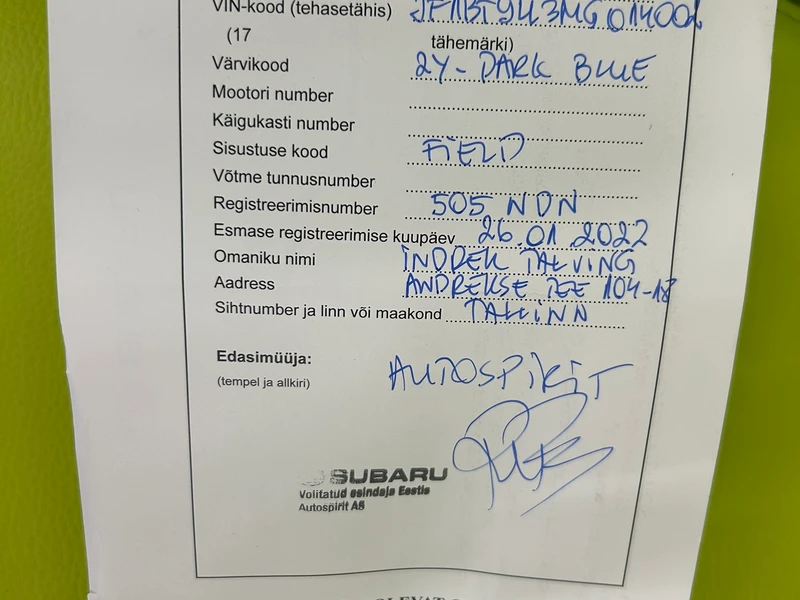 VIN-kood (tehasetähis) JF1BT9U3MG014002
(17 tähemärki)
Värvikood 2Y- DARK BLUE
Mootori number
Käigukasti number
Sisustuse kood FIELD
Võtme tunnusnumber
Registreerimisnumber 505 NDN
Esmase registreerimise kuupäev 26.01.2022
Omaniku nimi INDREK TALVING
Aadress ANDREKSE TEE 104-18
Sihtnumber ja linn või maakond TALLINN
Edasimüüja: AUTOSPIRIT
(tempel ja allkiri)
SUBARU
Volitatud esindaja Eestis
Autospirit AS